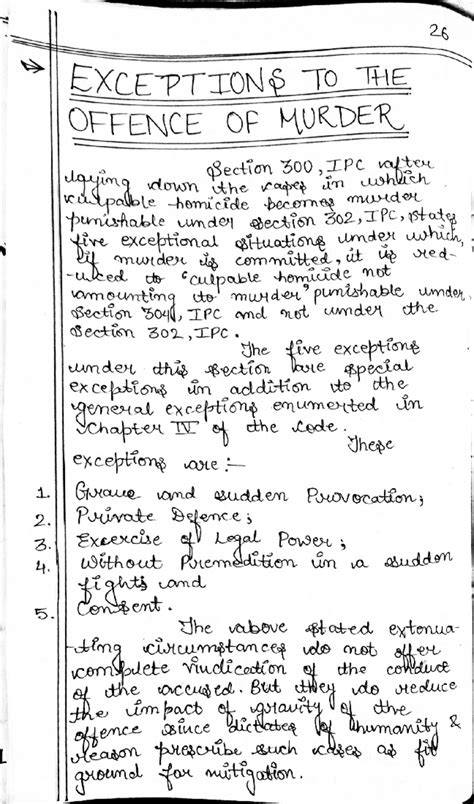 26
EXCEPTIONS TO THE
OFFENCE OF MURDER
Section 300, IPC after
laying down the cases in which
culpable homicide becomes murder
punishable under section 302, IPC, states
five exceptional situations under which,
if murder is committed, it is red-
-uced to 'culpable homicide not
amounting to murder' punishable under
Section 304, IPC and not under the
Section 302, IPC.
The five exceptions
under this section are special
exceptions in addition to the
general exceptions enumerted in
Chapter IV of the Code.
These
exceptions are :-
1. Grave and sudden Provocation;
2. Private Defence;
3. Excercise of Legal Power;
4. Without Premedition in a sudden
fights and
5. Consent.
The above stated extenua-
-ting circumstances do not offer
complete vindication of the conduct
of the accused. But they do reduce
the impact of gravity of the
offence since dictates of humanity &
reason prescribe such cases as fit
ground for mitigation.